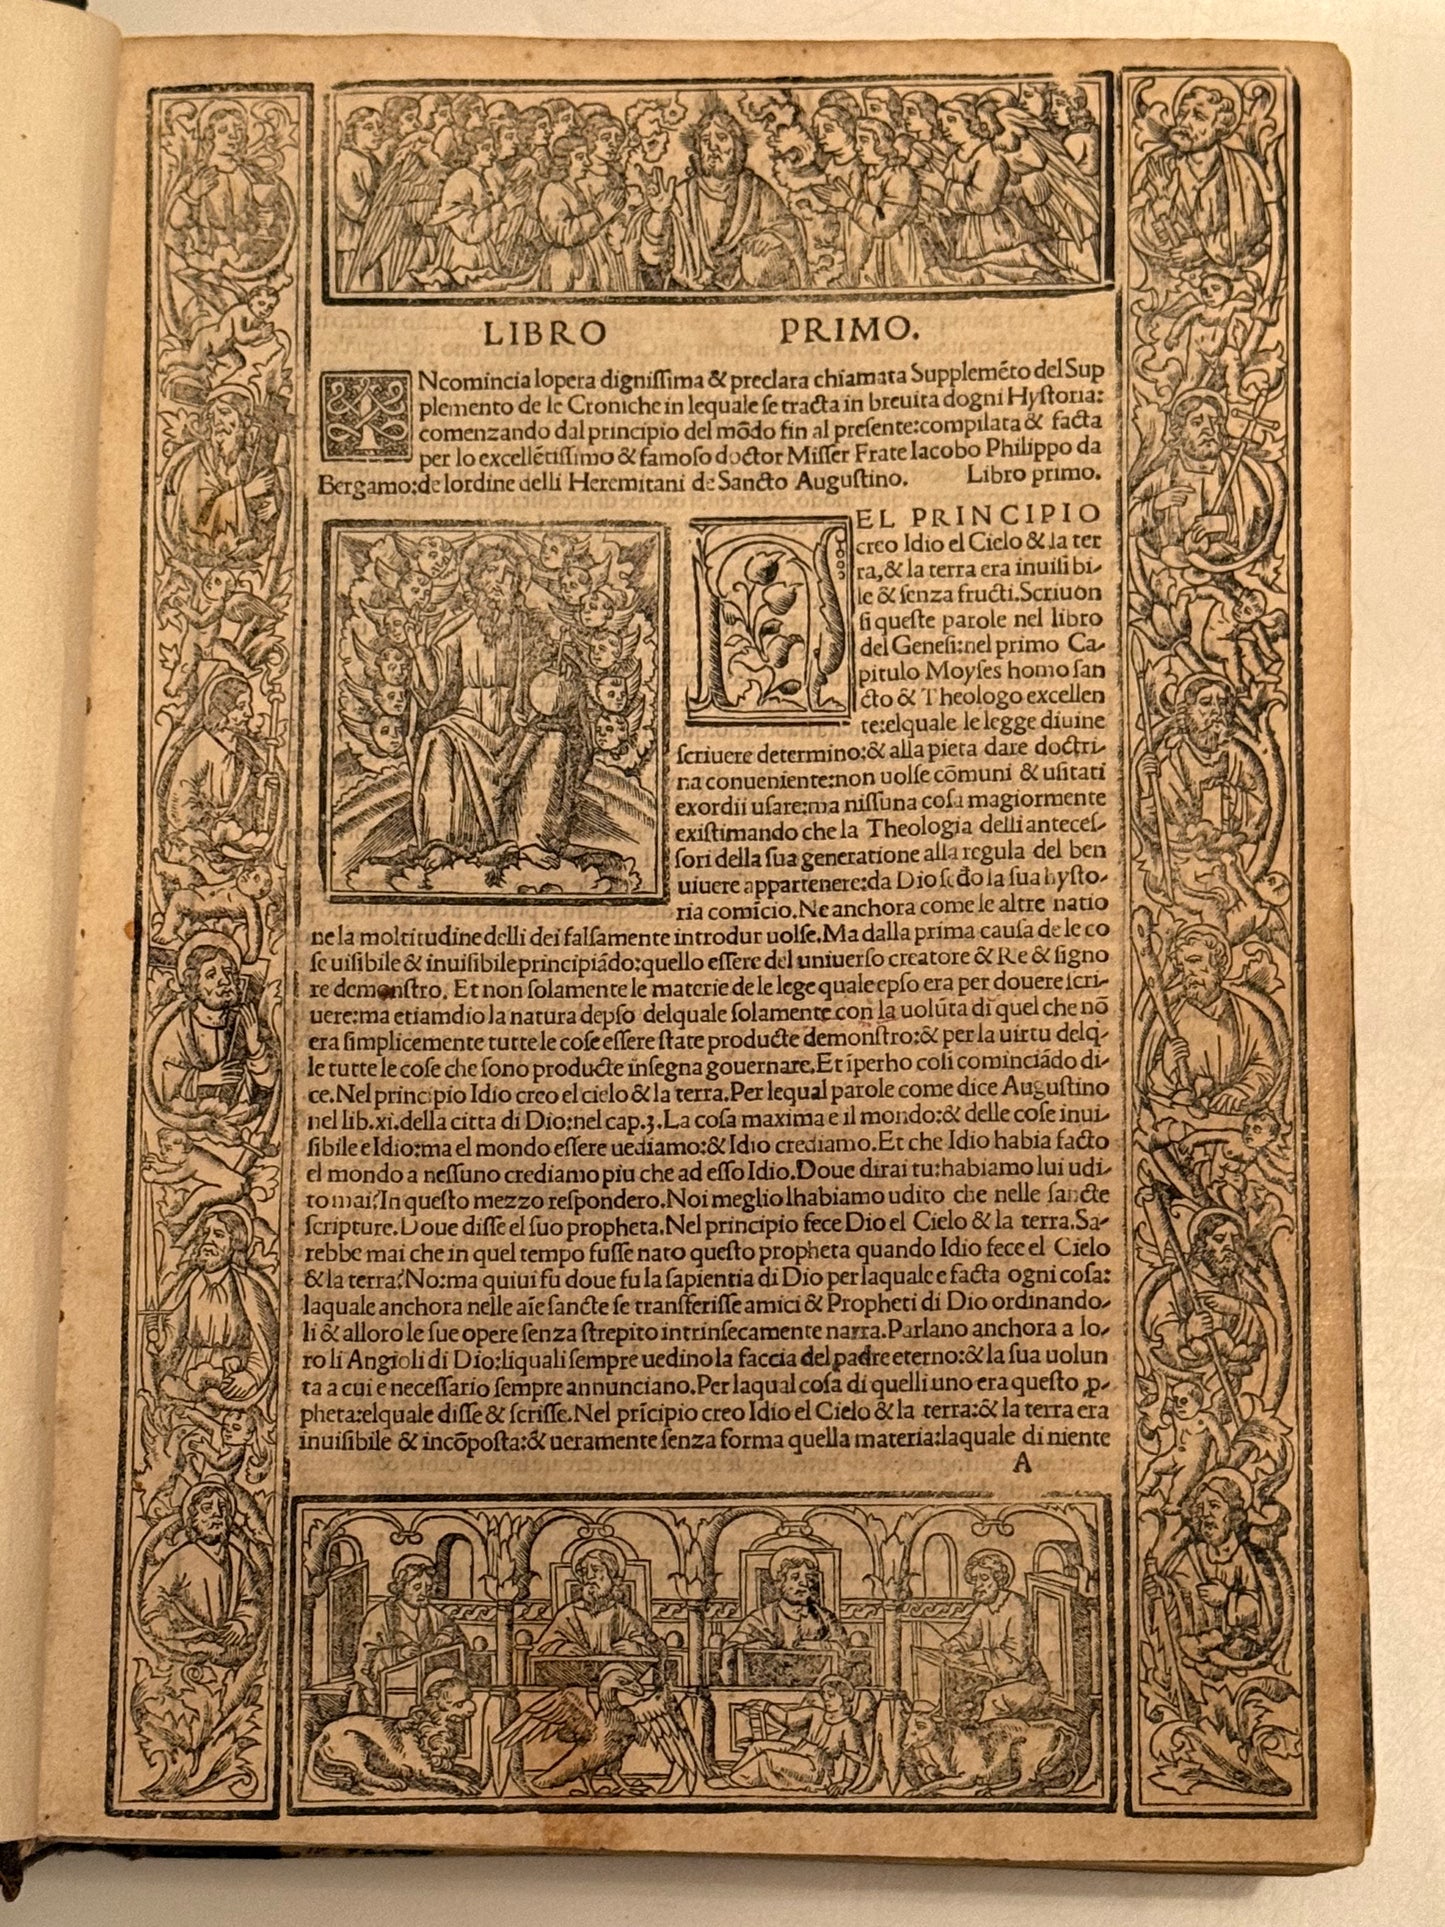 LIBRO PRIMO.
Ncomincia lopera dignissima & preclara chiamata Supplemēto del Sup
plemento de le Croniche in lequale se tracta in breuita dogni Hystoria:
comenzando dal principio del mōdo fin al presente:compilata & facta
per lo excellētissimo & famoso doctor Misser Frate Iacobo Philippo da
Bergamo:de lordine delli Heremitani de Sancto Augustino. Libro primo.
NEL PRINCIPIO
creo Idio el Cielo & la ter
ra,& la terra era inuisibi-
le & senza fructi.Scriuon
si queste parole nel libro
del Genesi:nel primo Ca-
pitulo Moyses homo san
cto & Theologo excellen
te:elquale le legge diuine
scriuere determino:& alla pieta dare doctri-
na conueniente:non uolse cōmuni & usitati
exordii usare:ma nissuna cosa magiormente
existimando che la Theologia delli anteces-
sori della sua generatione alla regula del ben
uiuere appartenere:da Dio sēdo la sua hysto-
ria comīcio.Ne anchora come le altre natio
ne la moltitudine delli dei falsamente introdur uolse.Ma dalla prima causa de le co
se uisibile & inuisibile principiādo:quello essere del uniuerso creatore & Re & signo
re demonstro. Et non solamente le materie de le lege quale epso era per douere scri-
uere:ma etiamdio la natura depso delquale solamente con la uolūta di quel che nō
era simplicemente tutte le cose essere state producte demonstro:& per la uirtu delq-
le tutte le cose che sono producte insegna gouernare.Et īperho cosi cominciādo di-
ce.Nel principio Idio creo el cielo & la terra.Per lequal parole come dice Augustino
nel lib.xi.della citta di Dio:nel cap.3.La cosa maxima e il mondo:& delle cose inui-
sibile e Idio:ma el mondo essere uediamo:& Idio crediamo.Et che Idio habia facto
el mondo a nessuno crediamo piu che ad esso Idio.Doue dirai tu:habiamo lui udi-
to mai?In questo mezzo respondero.Noi meglio lhabiamo udito che nelle sancte
scripture.Doue disse el suo propheta.Nel principio fece Dio el Cielo & la terra.Sa-
rebbe mai che in quel tempo fusse nato questo propheta quando Idio fece el Cielo
& la terra?No:ma quiui fu doue fu la sapientia di Dio per laquale e facta ogni cosa:
laquale anchora nelle aīe sancte se transferisse amici & Propheti di Dio ordinando-
li & alloro le sue opere senza strepito intrinsecamente narra.Parlano anchora a lo-
ro li Angioli di Dio:liquali sempre uedino la faccia del padre eterno:& la sua uolun
ta a cui e necessario sempre annunciano.Per laqual cosa di quelli uno era questo ꝓ-
pheta:elquale disse & scrisse.Nel prīcipio creo Idio el Cielo & la terra:& la terra era
inuisibile & incōposta:& ueramente senza forma quella materia:laquale di niente
A